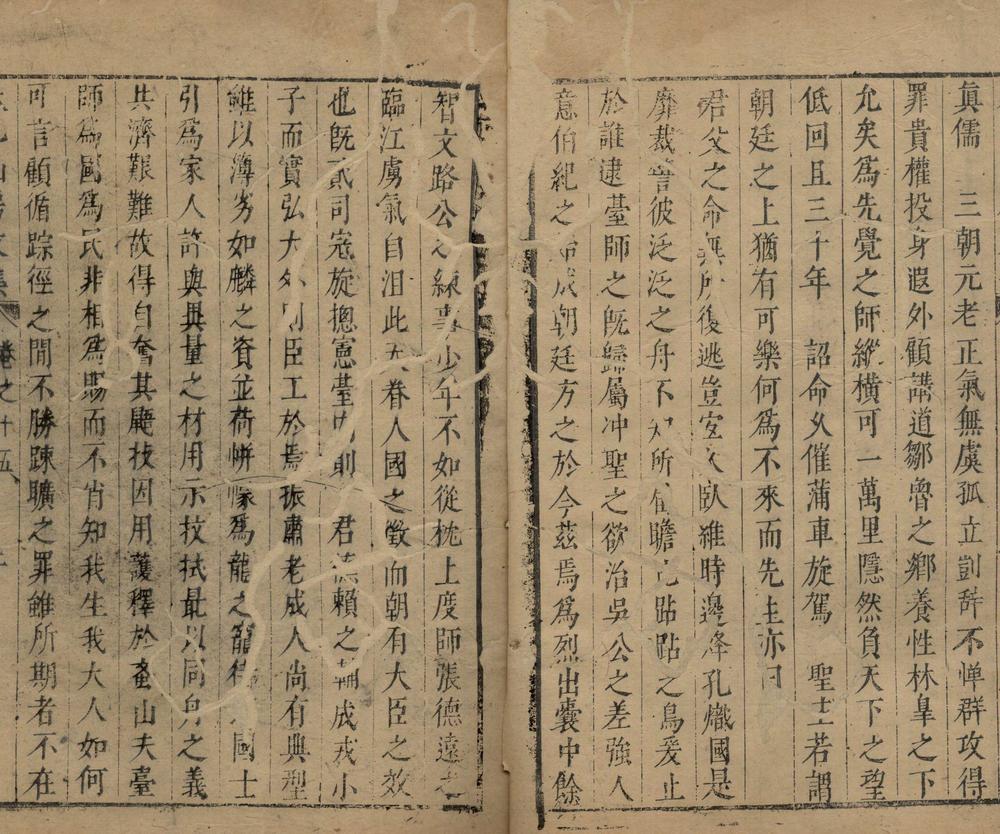 真儒　三朝元老正氣無虞孤立剴辭不憚群攻得
罪貴權投身遐外顧講道鄒魯之鄉養性林皐之下
允矣為先覺之師縱橫可一萬里隱然負天下之望
低回且三十年　詔命久催蒲車旋駕　聖主若謂
朝廷之上猶有可樂何為不來而先生亦曰
君父之命無所復逃豈宜久臥維時邊烽孔熾國是
靡裁言彼泛泛之舟不知所屆瞻跕跕之鳥爰止
於誰逮臺師之既歸屬冲聖之欲治吳公之差強人
意伯紀之成朝廷方之於今茲焉為烈出囊中餘
智文路公之練事少年不如從枕上度師張德遠之
臨江虜氣自沮此天眷人國之徵而朝有大臣之效
也既貳司寇旋摠憲臺則　君德賴之輔成戎小
子而實弘大外則臣工於焉振肅老成人尚有典型
雖以薄劣如麟之資並荷帡幪為龍之寵待國士
引為家人許與異量之材用示抆拭最以同舟之義
共濟艱難故得自奮其駑技因用護釋於蚤山夫臺
師為國為民非相為賜而不肖知我生我大人如何
可言顧循踪徑之間不勝踈曠之罪雖所期者不在
卷之十五